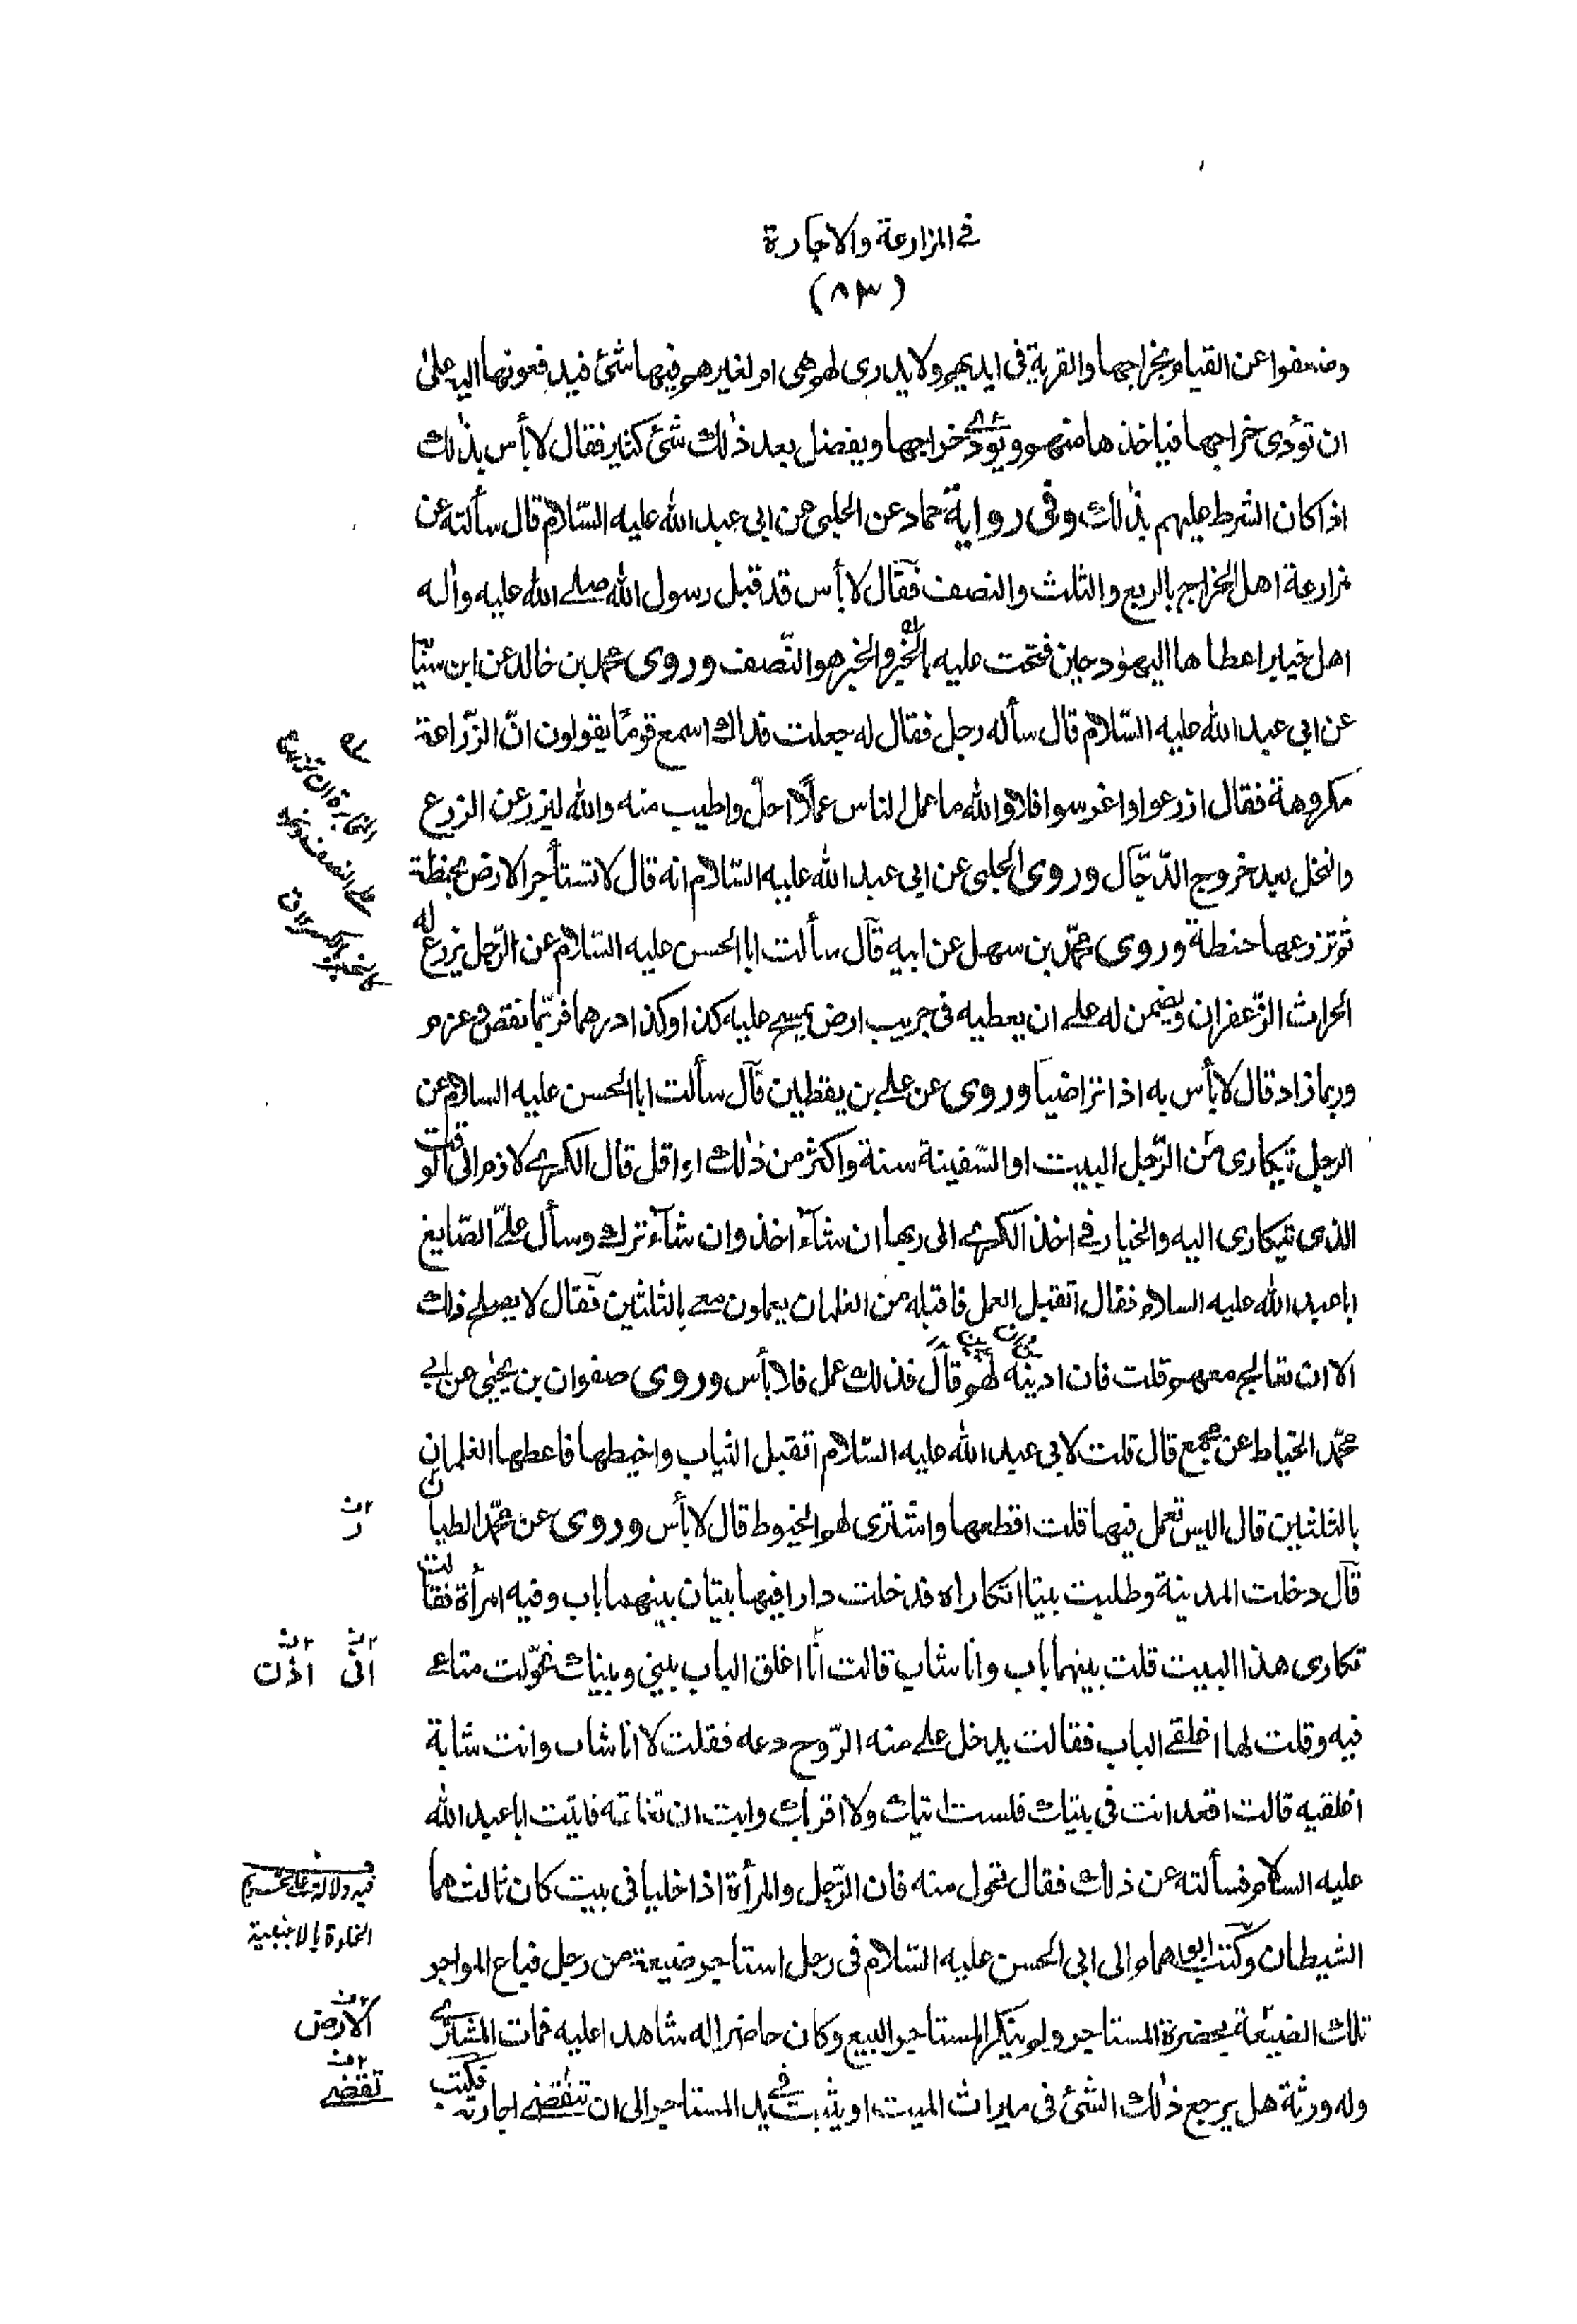 في المزارعة والاجارة
(٨٣)
وضعفوا عن القيام بخراجها والقرية فى ايديهم ولا يدرى لهم هى ام لغيرهم فيها شئ فيدفعونها اليه على
ان تؤدى خراجها فياخذها منهم ويؤدي خراجها ويفضل بعد ذلك شئ كثير فقال لا بأس بذلك
اذا كان الشرط عليهم بذلك وفى رواية حماد عن الحلبى عن ابى عبد الله عليه السلام قال سألته عن
مزارعة اهل الخراج بالربع والثلث والنصف فقال لا بأس قد قبل رسول الله صلى الله عليه واله
اهل خيبر اعطاها اليهود حين فتحت عليه بالخبر والخبر هو النصف وروى محمد بن خالد عن ابن سنان
عن ابى عبد الله عليه السلام قال سأله رجل فقال له جعلت فداك اسمع قوما يقولون ان الزراعة
مكروهة فقال ازرعوا واغرسوا فلا والله ما عمل الناس عملا احل واطيب منه والله ليزرعن الزرع
والنخل بعد خروج الدجال وروى الحلبى عن ابى عبد الله عليه السلام انه قال لا تستأجر الارض بحنطة
ثم تزرعها حنطة وروى محمد بن سهل عن ابيه قال سألت ابا الحسن عليه السلام عن الرجل يزرع له
الحراث الزعفران ويضمن له على ان يعطيه فى جريب ارض يمسح عليه كذا وكذا درهما فربما نقص وغرم
وربما زاد قال لا بأس به اذا تراضيا وروى عن على بن يقطين قال سألت ابا الحسن عليه السلام عن
الرجل يتكارى من الرجل البيت او السفينة سنة واكثر من ذلك او اقل قال الكرى لازم الى الوقت
الذى يتكارى اليه والخيار في اخذ الكرى الى ربها ان شآء اخذ وان شآء ترك وسأل على الصايغ
ابا عبد الله عليه السلام فقال اتقبل العمل فاقبله من الغلمان يعملون معى بالثلثين فقال لا يصلح ذلك
الا ان تعالج معهم قلت فان اذيبه لهم قال فذلك عمل فلا بأس وروى صفوان بن يحيى عن ابى
محمد الخياط عن مجمع قال قلت لابى عبد الله عليه السلام اتقبل الثياب واخيطها فاعطها الغلمان
بالثلثين قال اليس تعمل فيها قلت اقطعها واشترى لهم الخيوط قال لا بأس وروى عن محمد الطيان
٢ن ر
قال دخلت المدينة وطلبت بيتا اتكاراه فدخلت دارا فيها بيتان بينهما باب وفيه امرأة فقالت
تكارى هذا البيت قلت بينهما باب وانا شاب قالت انا اغلق الباب بينى وبينك فحولت متاعى
انى اذن
فيه وقلت لها اغلقي الباب فقالت يدخل على منه الروح دعه فقلت لا انا شاب وانت شابة
اغلقيه قالت اقعد انت فى بيتك فلست اتيك ولا اقربك وابت ان تغلقه فاتيت ابا عبد الله
عليه السلام فسألته عن ذلك فقال تحول منه فان الرجل والمرأة اذا خليا فى بيت كان ثالثهما
فيه دلالة على تحريم
الخلوة بالاجنبية
الشيطان وكتب ابو همام الى ابى الحسن عليه السلام فى رجل استاجر ضيعة من رجل فباع المواجر
تلك الضيعة بحضرة المستاجر ولم ينكر المستاجر البيع وكان حاضرا له شاهدا عليه فمات المشترى
الارض
وله ورثة هل يرجع ذلك الشئ فى ميراث الميت او يثبت في يد المستاجر الى ان تنقضى اجارته فكتب
تنقضي